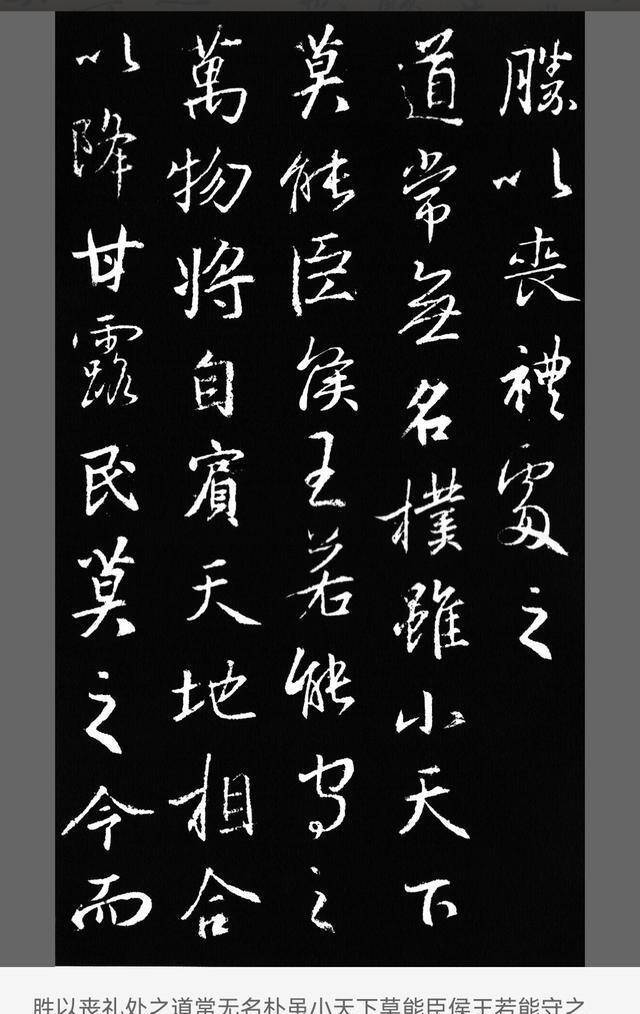 勝以喪禮處之
道常無名樸雖小天下
莫能臣侯王若能守之
萬物將自賓天地相合
以降甘露民莫之令而
胜以丧礼处之道常无名朴虽小天下莫能臣侯王若能守之